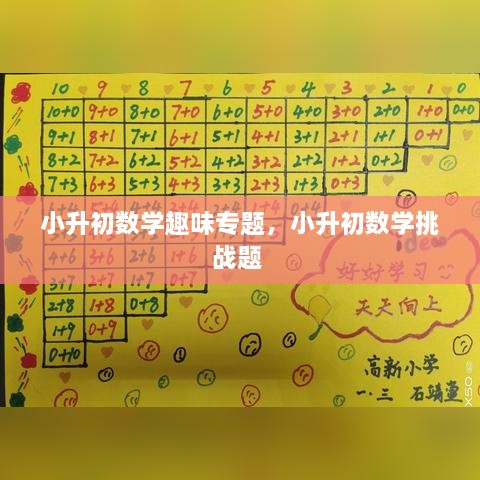 10 9 8 7 6 5 4 3 2 1 0
10+0 9+0 8+0 7+0 6+0 5+0 4+0 3+0 2+0 1+0 0+0
9+1 8+1 7+1 6+1 5+1 4+1 3+1 2+1 1+1 0+1
8+2 7+2 6+2 5+2 4+2 3+2 2+2 1+2 0+2
7+3 6+3 5+3 4+3 3+3 2+3 1+3 0+3
小升初数学趣味专题，小升初数学挑
战题
4+6 3+6 2+6 1+6
好好学习
3+7 2+7 1+7 0+7
2+8 1+8 0+8
天天向上
1+9 0+9
0+10
高新小学
一.三 石靖萱